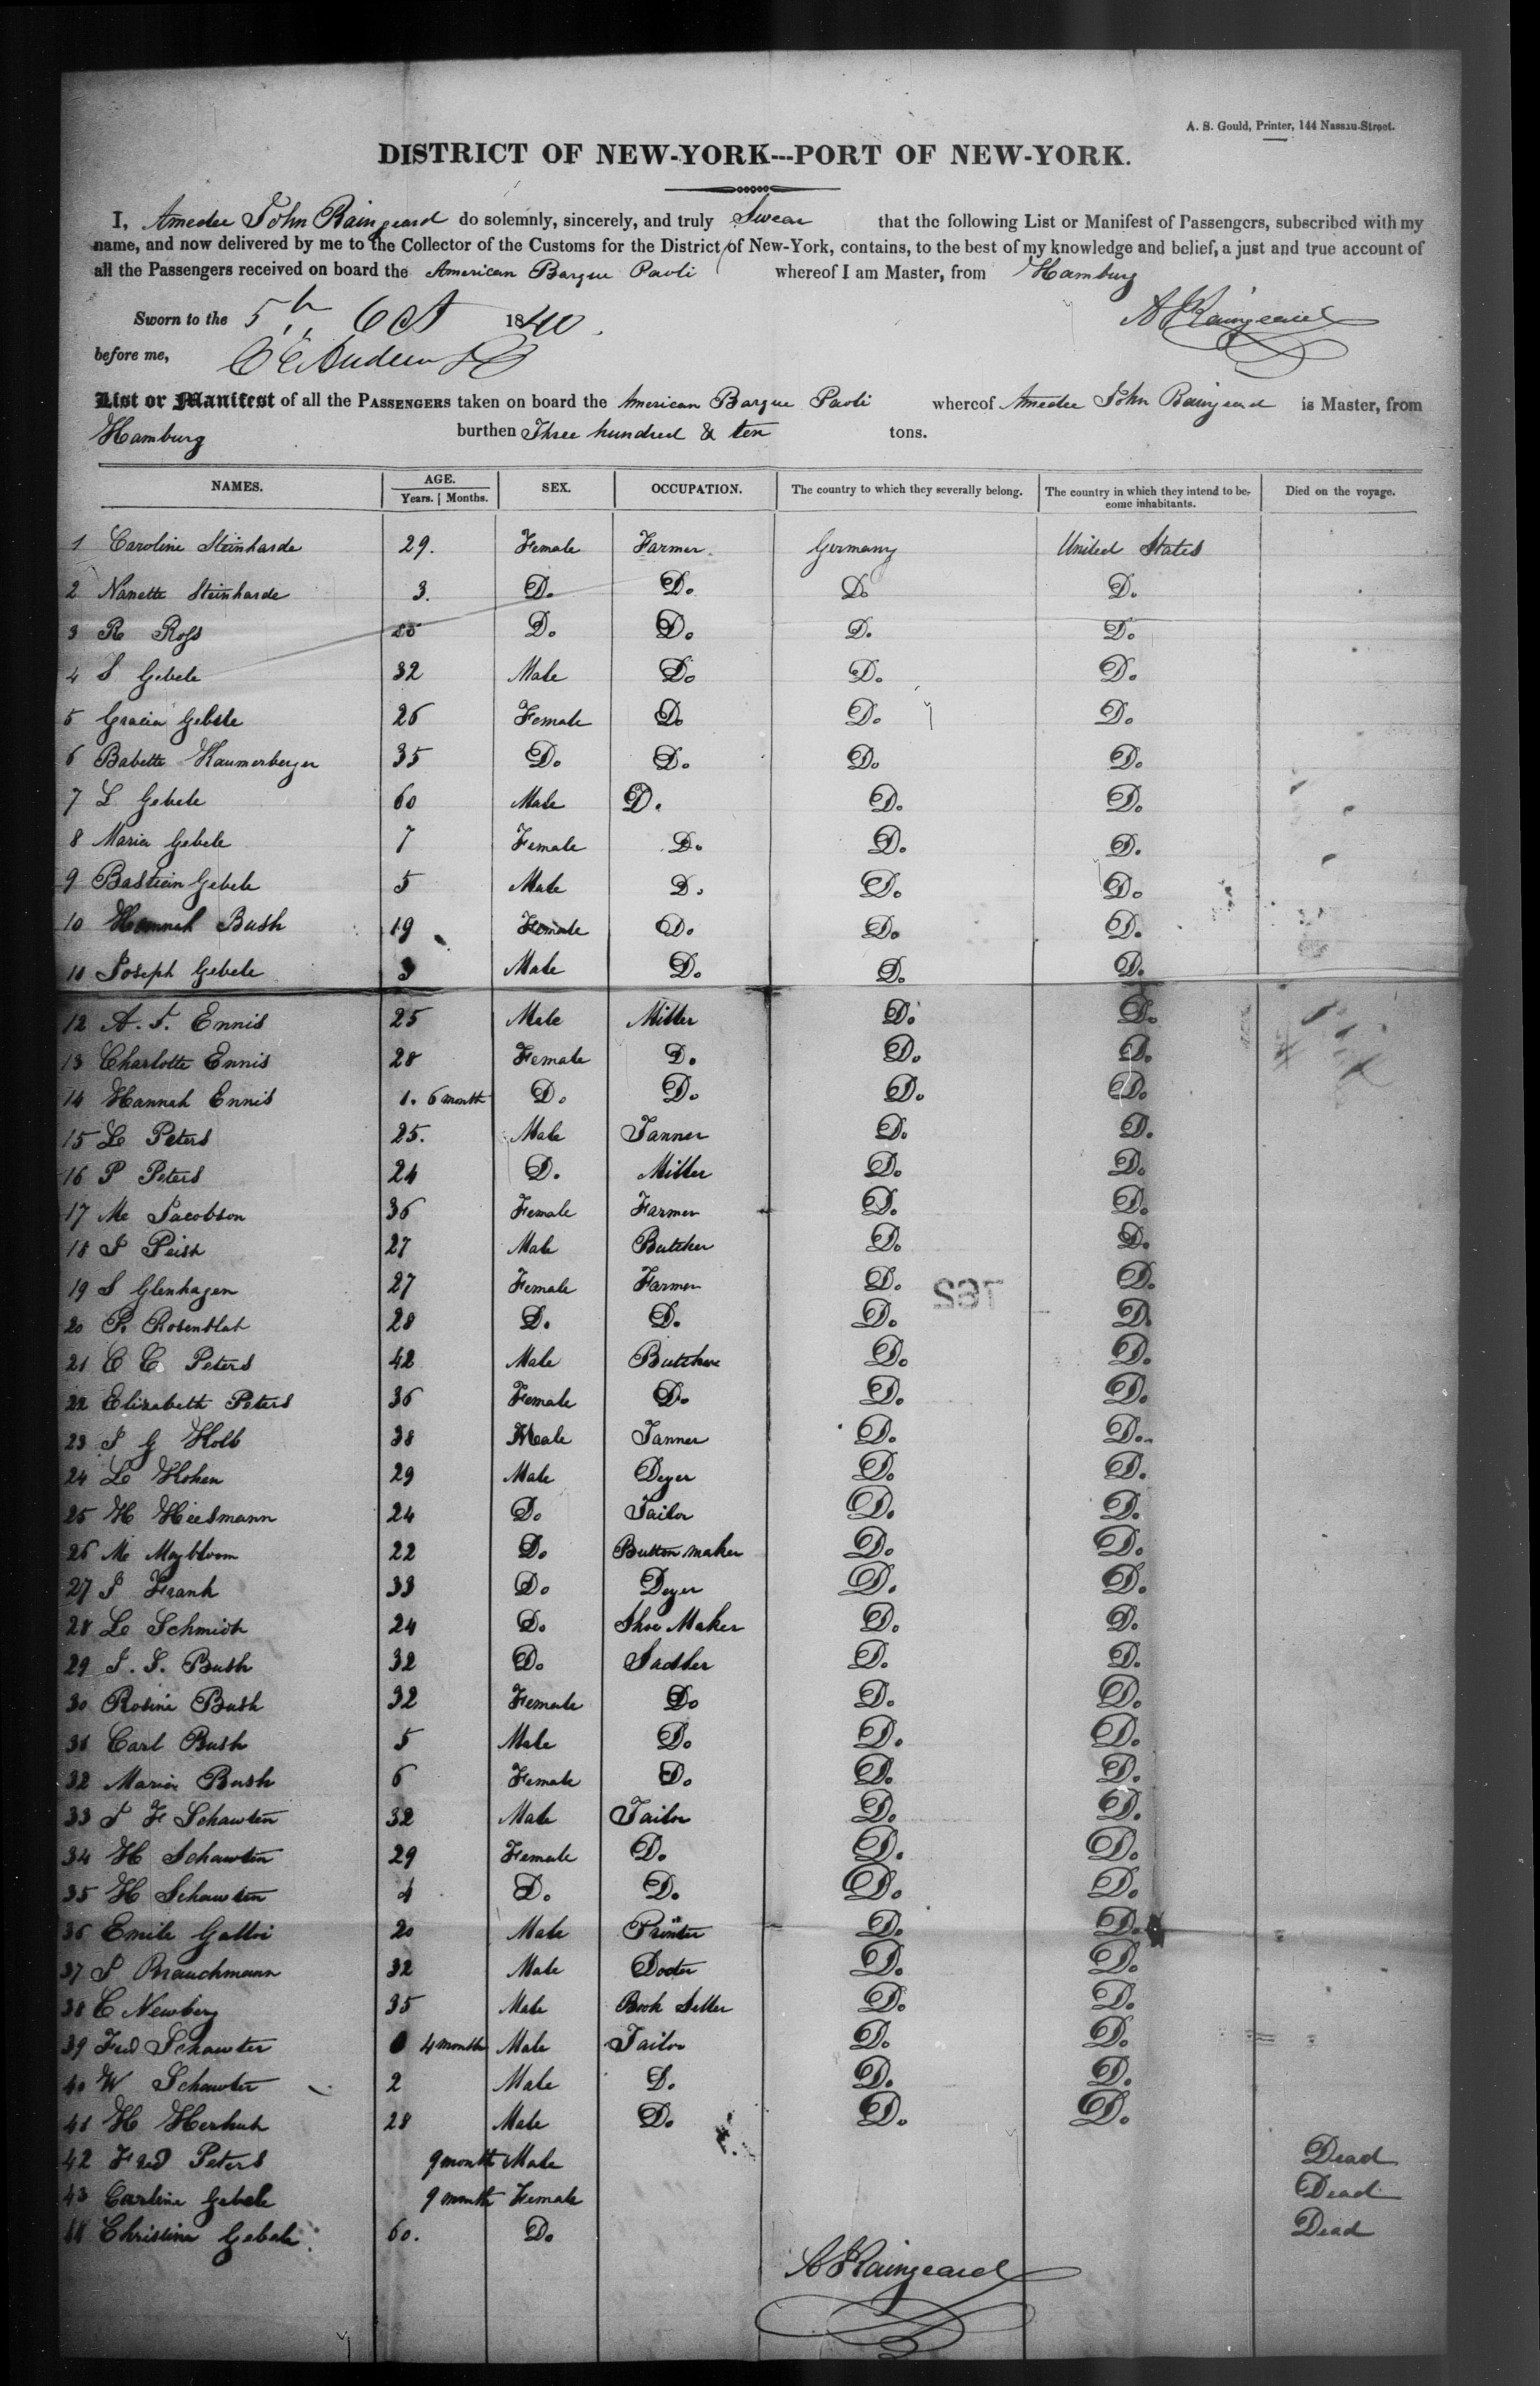 A. S. Gould, Printer, 144 Nassau-Street.
DISTRICT OF NEW-YORK---PORT OF NEW-YORK.
I, Amedee John Raingeard do solemnly, sincerely, and truly Swear that the following List or Manifest of Passengers, subscribed with my
name, and now delivered by me to the Collector of the Customs for the District of New-York, contains, to the best of my knowledge and belief, a just and true account of
all the Passengers received on board the American Barque Paoli whereof I am Master, from Hamburg
Sworn to the 5th Oct 1840. A J Raingeard
before me,
List or Manifest of all the PASSENGERS taken on board the American Barque Paoli whereof Amedee John Raingeard is Master, from
Hamburg burthen Three hundred & ten tons.
NAMES. AGE. SEX. OCCUPATION. The country to which they severally belong. The country in which they intend to be- Died on the voyage.
Years. Months. come inhabitants.
1 Caroline Steinharde 29. Female Farmer Germany United States
2 Nanette Steinharde 3. Do. Do. Do Do.
3 R Ross Do. Do. Do. Do.
4 S Gebele 32 Male Do Do. Do.
5 Gracia Gebele 26 Female Do Do. Do.
6 Babette Haumerberger 35 Do. Do. Do Do.
7 L Gebele 60 Male Do. Do. Do.
8 Maria Gebele 7 Female Do. Do. Do.
9 Bastian Gebele 5 Male Do. Do. Do.
10 Hannah Bush 19 Female Do. Do. Do.
11 Joseph Gebele 3 Male Do. Do. Do.
12 A. J. Ennis 25 Male Miller Do. Do.
13 Charlotte Ennis 28 Female Do. Do. Do.
14 Hannah Ennis 1. 6 month Do. Do. Do. Do.
15 L Peters 25. Male Tanner Do. Do.
16 P Peters 24 Do. Miller Do. Do.
17 M Jacobson 36 Female Farmer Do. Do.
18 J Peish 27 Male Butcher Do. Do.
19 S Glenhagen 27 Female Farmer Do. Do.
20 P. Rosenblat 28 Do. Do. Do. Do.
21 C C Peters 42 Male Butcher Do. Do.
22 Elizabeth Peters 36 Female Do. Do. Do.
23 J G Holb 38 Male Tanner Do. Do.
24 L Kohen 29 Male Deyer Do. Do.
25 H Heesmann 24 Do Tailor Do. Do.
26 M Maybloom 22 Do Button maker Do. Do.
27 J Frank 33 Do Deyer Do. Do.
28 L Schmidt 24 Do. Shoe Maker Do. Do.
29 J. S. Bush 32 Do. Sadler Do. Do.
30 Rosine Bush 32 Female Do Do. Do.
31 Carl Bush 5 Male Do. Do. Do.
32 Maria Bush 6 Female Do. Do. Do.
33 J F Schawten 32 Male Tailor Do. Do.
34 H Schawten 29 Female Do. Do. Do.
35 H Schawten 4 Do. Do. Do. Do.
36 Emile Galloi 20 Male Printer Do. Do.
37 S Brauchmann 32 Male Docter Do. Do.
38 C Newberg 35 Male Book Seller Do. Do.
39 Fred Schawter 0 4 month Male Tailor Do. Do.
40 W Schawter 2 Male Do. Do. Do.
41 H Herhuh 28 Male Do. Do. Do.
42 Fred Peters 9 month Male Dead
43 Carline Gebele 9 month Female Dead
44 Christine Gebele. 60. Do Dead
A J Raingeard